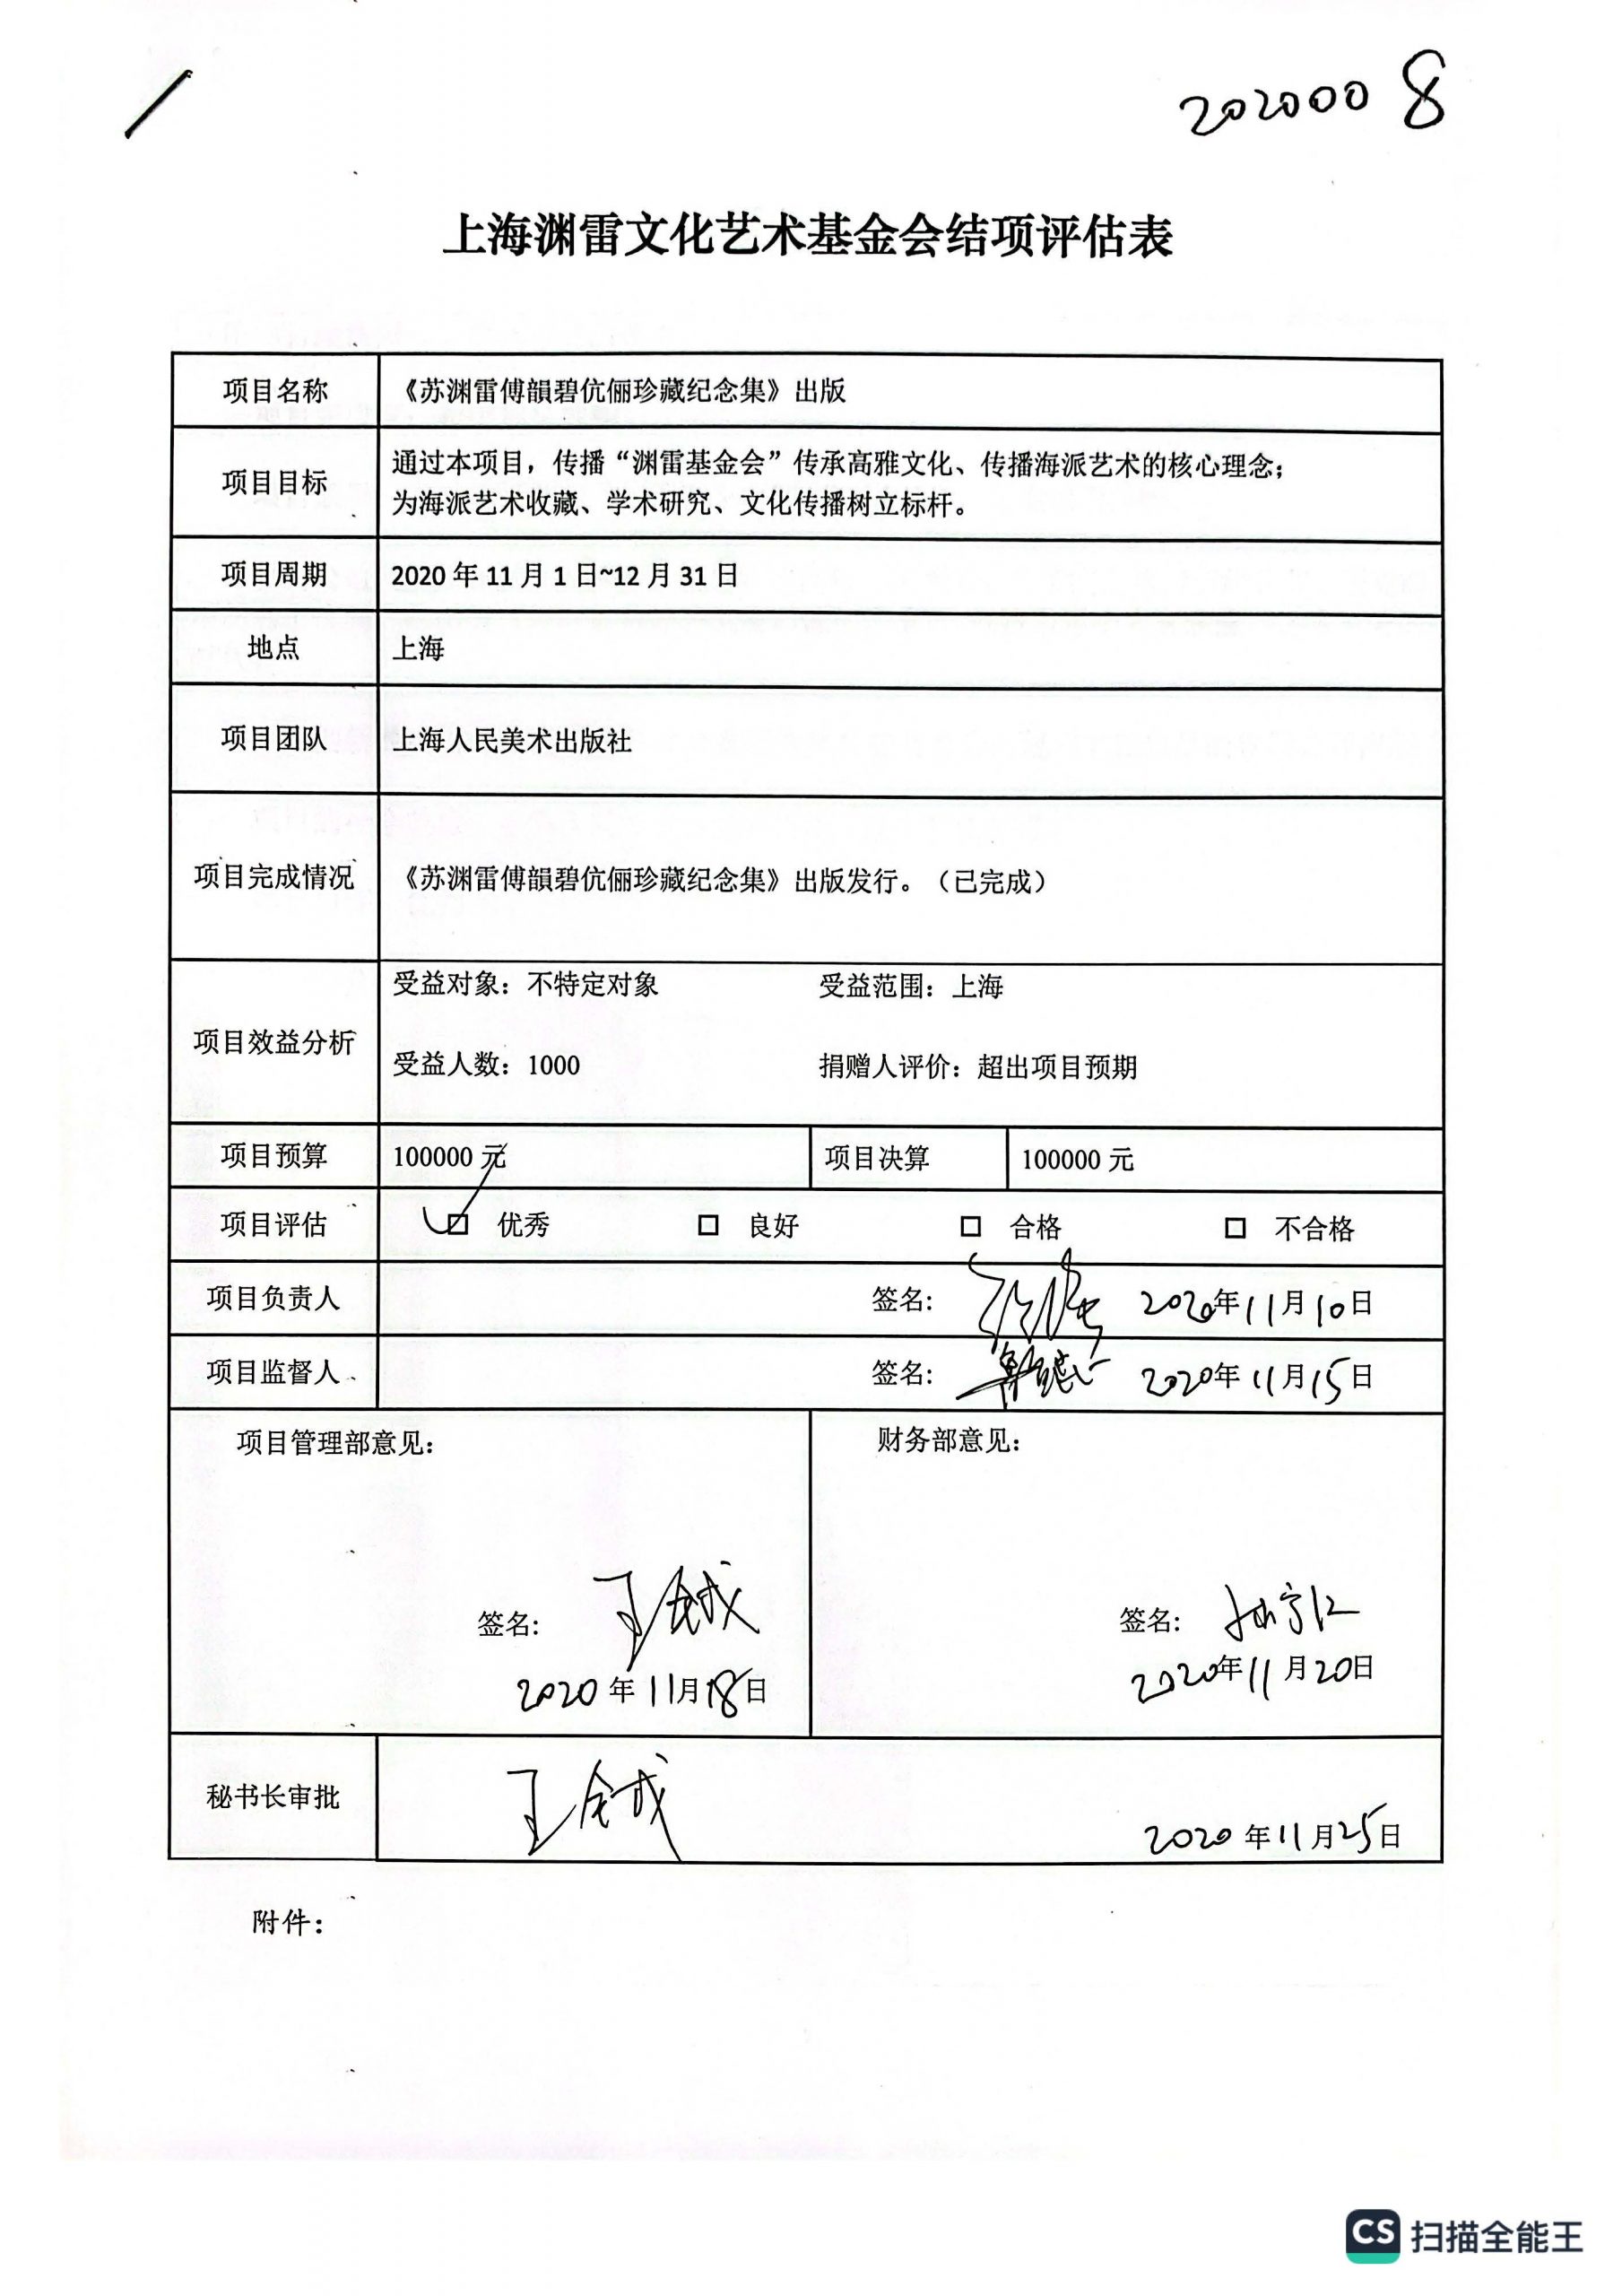 2020008
上海渊雷文化艺术基金会结项评估表
项目名称 《苏渊雷傅韻碧伉俪珍藏纪念集》出版
项目目标 通过本项目，传播“渊雷基金会”传承高雅文化、传播海派艺术的核心理念；
为海派艺术收藏、学术研究、文化传播树立标杆。
项目周期 2020 年 11 月 1 日~12 月 31 日
地点 上海
项目团队 上海人民美术出版社
项目完成情况 《苏渊雷傅韻碧伉俪珍藏纪念集》出版发行。（已完成）
项目效益分析
受益对象：不特定对象 受益范围：上海
受益人数：1000 捐赠人评价：超出项目预期
项目预算 100000 元 项目决算 100000 元
项目评估 ☑ 优秀 □ 良好 □ 合格 □ 不合格
项目负责人 签名: 2020年11月10日
项目监督人 签名: 2020年11月15日
项目管理部意见： 财务部意见：
签名: 签名:
2020年11月18日 2020年11月20日
秘书长审批 2020年11月25日
附件：
CS 扫描全能王